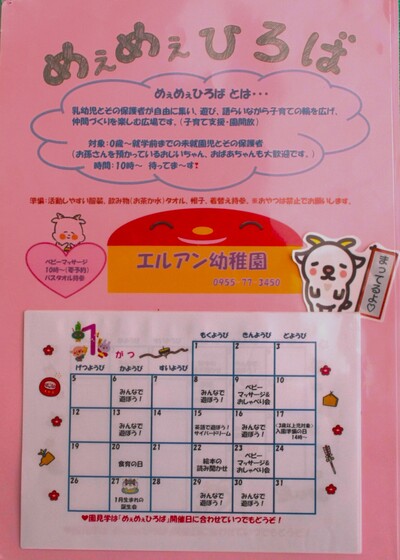 めぇめぇひろば
めぇめぇひろば とは・・・
乳幼児とその保護者が自由に集い、遊び、語らいながら子育ての輪を広げ、
仲間づくりを楽しむ広場です。（子育て支援・園開放）
対象：0歳〜就学前までの未就園児とその保護者
（お孫さんを預かっているおじいちゃん、おばあちゃんも大歓迎です。）
時間：10時〜 待ってま〜す！
準備：活動しやすい服装、飲み物（お茶か水）タオル、帽子、着替え持参。※おやつは禁止でお願いします。
ベビーマッサージ
10時〜（要予約）
バスタオル持参
エルアン幼稚園
0955 77 2450
まってるよ
1がつ
げつようび かようび すいようび もくようび きんようび どようび
1 2 3
5 6 7 8 9 10
みんなで遊ぼう！
みんなで遊ぼう！
ベビーマッサージ＆おしゃべり会
12 13 14 15 16 17
みんなで遊ぼう！
英語で遊ぼう！サイバードリーム
みんなで遊ぼう！
（3歳以上児対象）入園準備の日 14時〜
19 20 21 22 23 24
食育の日
絵本の読み聞かせ
ベビーマッサージ＆おしゃべり会
26 27 28 29 30 31
1月生まれの誕生会
みんなで遊ぼう！
みんなで遊ぼう！
♥園見学は「めぇめぇひろば」開催日に合わせていつでもどうぞ！